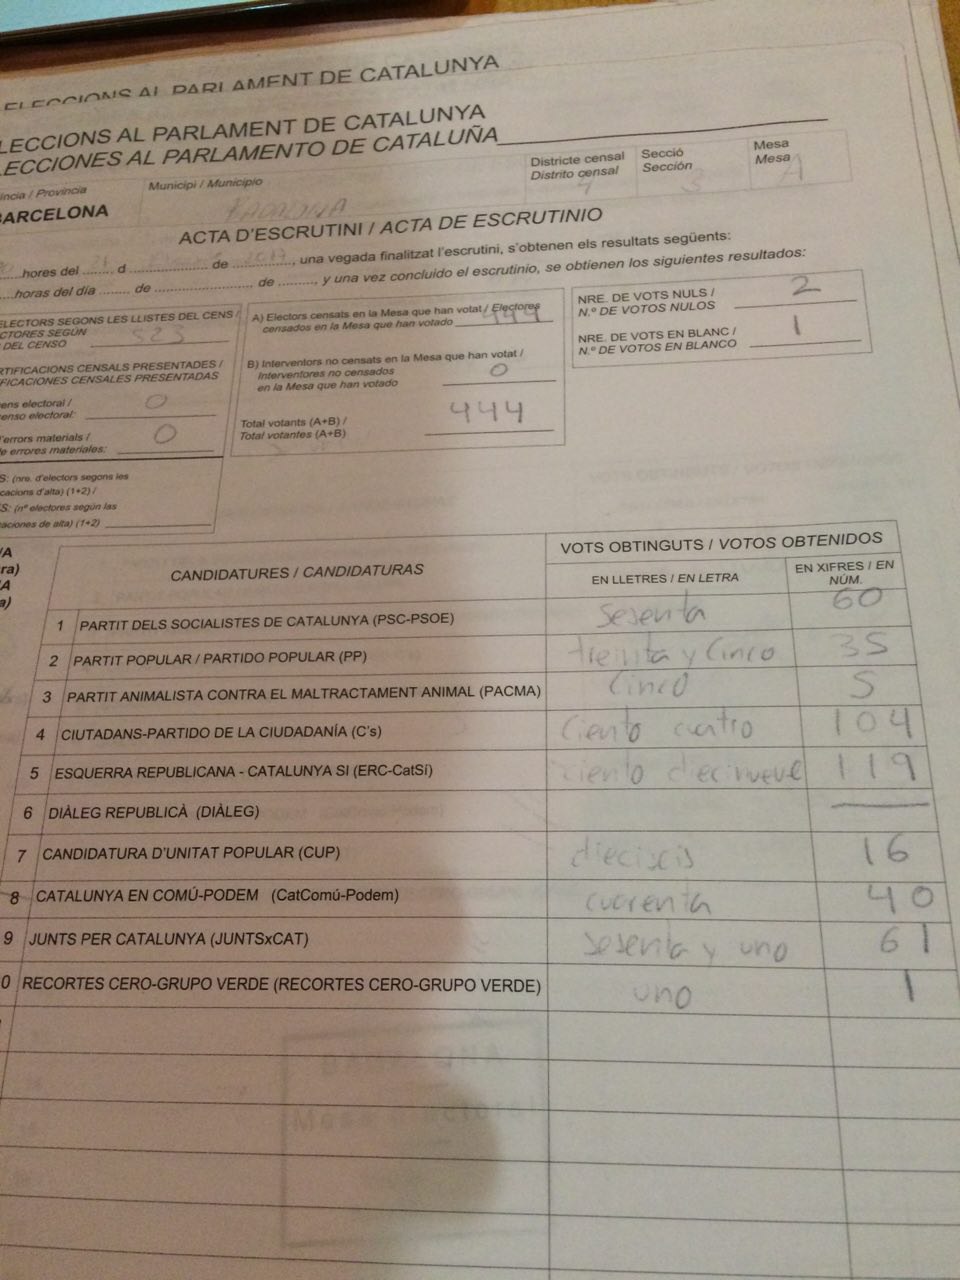 ELECCIONS AL PARLAMENT DE CATALUNYA
LECCIONS AL PARLAMENT DE CATALUNYA
LECCIONES AL PARLAMENTO DE CATALUÑA
incia / Provincia
BARCELONA
Municipi / Municipio
Districte censal
Distrito censal
Secció
Sección
3
Mesa
Mesa
A
ACTA D'ESCRUTINI / ACTA DE ESCRUTINIO
hores del ........ d .................... de ..............., una vegada finalitzat l'escrutini, s'obtenen els resultats següents:
horas del día ........ de ......................... de ........, y una vez concluido el escrutinio, se obtienen los siguientes resultados:
ELECTORS SEGONS LES LLISTES DEL CENS /
CTORES SEGÚN
DEL CENSO 523
RTIFICACIONS CENSALS PRESENTADES /
FICACIONES CENSALES PRESENTADAS
ens electoral /
enso electoral: 0
'errors materials /
e errores materiales: 0
S: (nre. d'electors segons les
cacions d'alta) (1+2) /
S: (nº electores según las
caciones de alta) (1+2)
A) Electors censats en la Mesa que han votat / Electores
censados en la Mesa que han votado 444
B) Interventors no censats en la Mesa que han votat /
Interventores no censados
en la Mesa que han votado 0
Total votants (A+B) /
Total votantes (A+B) 444
NRE. DE VOTS NULS /
N.º DE VOTOS NULOS 2
NRE. DE VOTS EN BLANC /
N.º DE VOTOS EN BLANCO 1
/A
ra)
A
a)
CANDIDATURES / CANDIDATURAS
VOTS OBTINGUTS / VOTOS OBTENIDOS
EN LLETRES / EN LETRA
EN XIFRES / EN
NÚM.
1 PARTIT DELS SOCIALISTES DE CATALUNYA (PSC-PSOE) sesenta 60
2 PARTIT POPULAR / PARTIDO POPULAR (PP) treinta y cinco 35
3 PARTIT ANIMALISTA CONTRA EL MALTRACTAMENT ANIMAL (PACMA) Cinco 5
4 CIUTADANS-PARTIDO DE LA CIUDADANÍA (C's) Ciento cuatro 104
5 ESQUERRA REPUBLICANA - CATALUNYA SI (ERC-CatSí) ciento diecinueve 119
6 DIÀLEG REPUBLICÀ (DIÀLEG) —
7 CANDIDATURA D'UNITAT POPULAR (CUP) dieciseis 16
8 CATALUNYA EN COMÚ-PODEM (CatComú-Podem) cuarenta 40
9 JUNTS PER CATALUNYA (JUNTSxCAT) sesenta y uno 61
0 RECORTES CERO-GRUPO VERDE (RECORTES CERO-GRUPO VERDE) uno 1